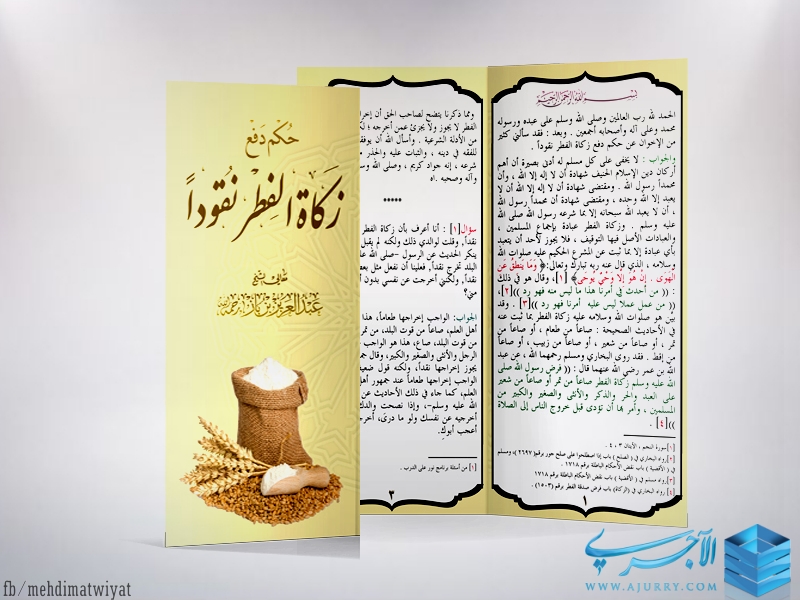 حُكم دَفع
زكاة الفِطر نقُوداً
عبد العزيز بن باز
بسم الله الرحمن الرحيم
الحمد لله رب العالمين وصلى الله وسلم على عبده ورسوله
محمد وعلى آله وأصحابه أجمعين . وبعد : فقد سألني كثير
من الإخوان عن حكم دفع زكاة الفطر نقوداً .
والجواب : لا يخفى على كل مسلم له أدنى بصيرة أن أهم
أركان دين الإسلام الحنيف شهادة أن لا إله إلا الله ، وأن
محمداً رسول الله . ومقتضى شهادة أن لا إله إلا الله أن لا
يعبد إلا الله وحده ، ومقتضى شهادة أن محمداً رسول الله
، أن لا يعبد الله سبحانه إلا بما شرعه رسول الله صلى الله
عليه وسلم . وزكاة الفطر عبادة بإجماع المسلمين ،
والعبادات الأصل فيها التوقيف ، فلا يجوز لأحد أن يتعبد
بأي عبادة إلا بما ثبت عن المشرع الحكيم عليه صلوات الله
وسلامه ، الذي قال عنه ربه تبارك وتعالى:﴿ وَمَا يَنطِقُ عَنِ
الْهَوَى . إِنْ هُوَ إِلا وَحْيٌ يُوحَى﴾ [١]، وقال هو في ذلك
: (( من أحدث في أمرنا هذا ما ليس منه فهو رد ))[٢]،
(( من عمل عملاً ليس عليه أمرنا فهو رد ))[٣] . وقد
بيّن هو صلوات الله وسلامه عليه زكاة الفطر بما ثبت عنه
في الأحاديث الصحيحة : صاعاً من طعام ، أو صاعاً من
تمر ، أو صاعاً من شعير ، أو صاعاً من زبيب ، أو صاعاً
من إقط . فقد روى البخاري ومسلم رحمهما الله ، عن عبد
الله بن عمر رضي الله عنهما قال : (( فرض رسول الله صلى
الله عليه وسلم زكاة الفطر صاعاً من تمر أو صاعاً من شعير
على العبد والحر والذكر والأنثى والصغير والكبير من
المسلمين ، وأمر بها أن تؤدى قبل خروج الناس إلى الصلاة
))[٤] .
[١] سورة النجم ، الآيتان ٣ ، ٤ .
[٢] رواه البخاري في ( الصلح ) باب إذا اصطلحوا على صلح جور برقم(٢٦٩٧)، ومسلم
في ( الأقضية ) باب نقض الأحكام الباطلة برقم ١٧١٨ .
[٣] رواه مسلم في ( الأقضية ) باب نقض الأحكام الباطلة برقم ١٧١٨
[٤] رواه البخاري في (الزكاة) باب فرض صدقة الفطر برقم (١٥٠٣) .
١
ومما ذكرنا يتضح لصاحب الحق أن إخراج
الفطر لا يجوز ولا يجزئ عمن أخرجه ؛
من الأدلة الشرعية . وأسأل الله أن يوفقنا
للفقه في دينه ، والثبات عليه والحذر
شرعه ، إنه جواد كريم ، وصلى الله
وآله وصحبه .اه
*****
سؤال[١] : أنا أعرف بأن زكاة الفطر
نقداً، وقلت لوالدي ذلك ولكنه لم يقبل
ينكر الحديث عن الرسول -صلى الله
البلد تخرج نقداً، فعلينا أن نفعل مثل
نقداً، ولكنني أخرجت عن نفسي بدون
مني؟
الجواب: الواجب إخراجها طعاماً، هذا
أهل العلم، صاعاً من قوت البلد، من تمر
من قوت البلد، صاع، هذا هو الواجب
الرجل والأنثى والصغير والكبير، وقال
يجوز إخراجها نقداً، ولكنه قول ضعيف
الواجب إخراجها طعاماً عند جمهور أهل
العلم، كما جاء في ذلك الأحاديث عن
الله عليه وسلم-، وإذا نصحت والدك
أخرجيه عن نفسك ولو ما درى،
أعجب أبوك.
[١] من أسئلة برنامج نور على الدرب .
٣
الآجري
WWW.AJURRY.COM
fb/mehdimatwiyat